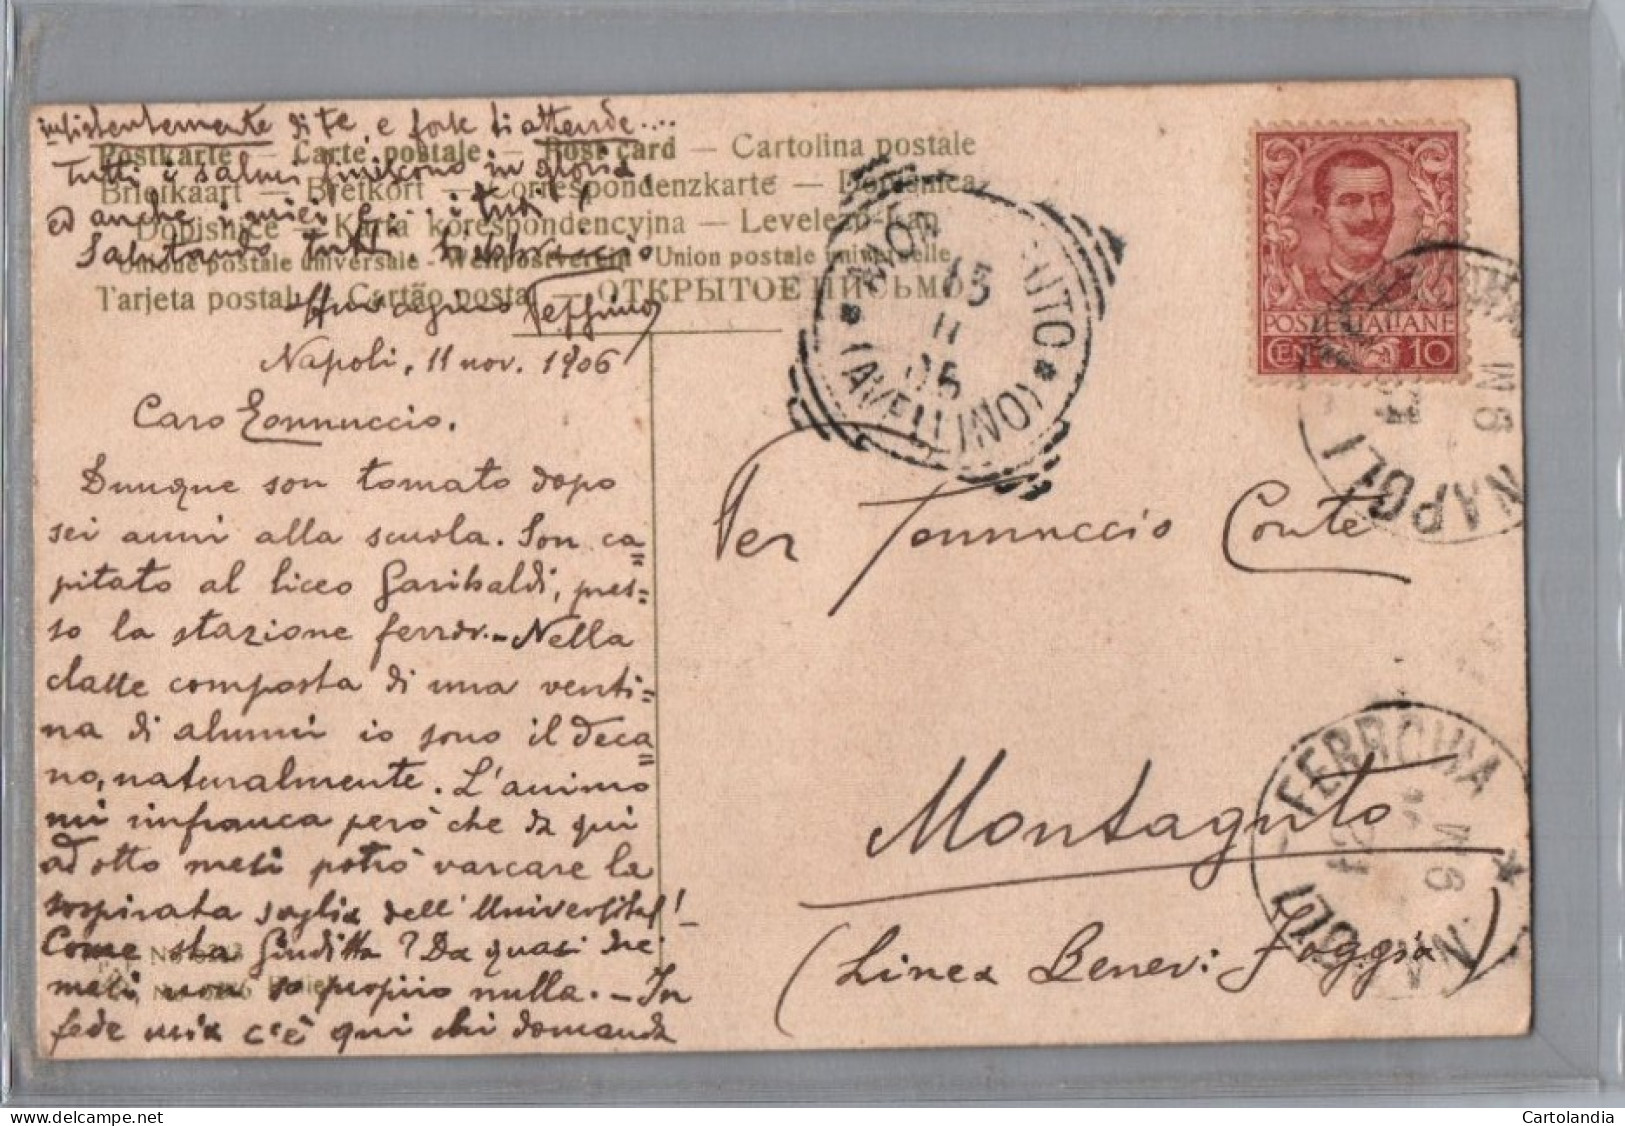 insistentemente di te, e forse ti attende....
Tutti i salmi finiscono in gloria,
ed anche i miei e... i tuoi!
Salutando tutti, ti abbraccio
Peppino
Postkarte — Carte postale — Post card — Cartolina postale
Briefkaart — Brefkort — Correspondenzkarte — Dopisnica
Dopisnice — Karta korespondencyjna — Levelező-Lap
Unione postale universale - Weltpostverein - Union postale universelle
Tarjeta postal — Cartão postal — ОТКРЫТОЕ ПИСЬМО
Napoli, 11 nov. 1906
Caro Tonnuccio.
Dunque son tornato dopo
sei anni alla scuola. Son ca=
pitato al liceo Garibaldi, pres=
so la stazione ferrov. — Nella
classe composta di una venti=
na di alunni io sono il deca=
no, naturalmente. L'animo
mi rinfranca però che da qui
ad otto mesi potrò varcare la
sospirata soglia dell'Università!
Come sta Giuditta? Da quasi due
mesi non so proprio nulla. — In
fede mia c'è qui chi domanda
POSTE ITALIANE
CENT. 10
MONTAGUTO
(AVELLINO)
13
11
06
NAPOLI
Per Tonnuccio Conte
Montaguto
(Linea Benev: Foggia)
FERROVIA
NAPOLI
Cartolandia